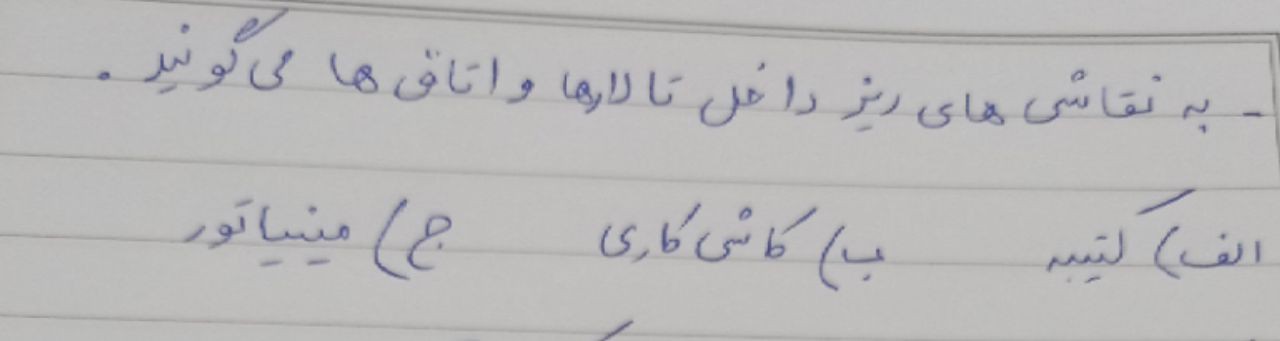 - به نقاشی های ریز داخل تالارها و اتاق ها می گویند .
الف) کتیبه ب) کاشی کاری ج) مینیاتور